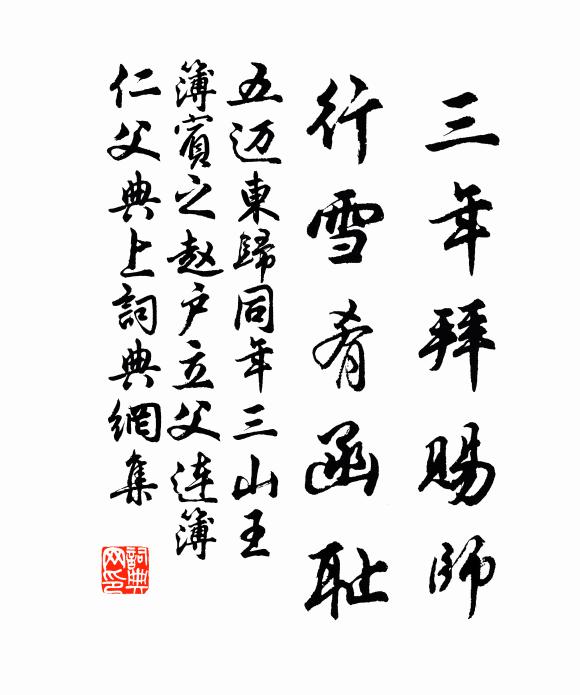 三年拜赐師
行雪肴函耻
五迈東歸同年三山王
簿賓之赵户立父连簿
仁父典上詞典網集
詞典網印